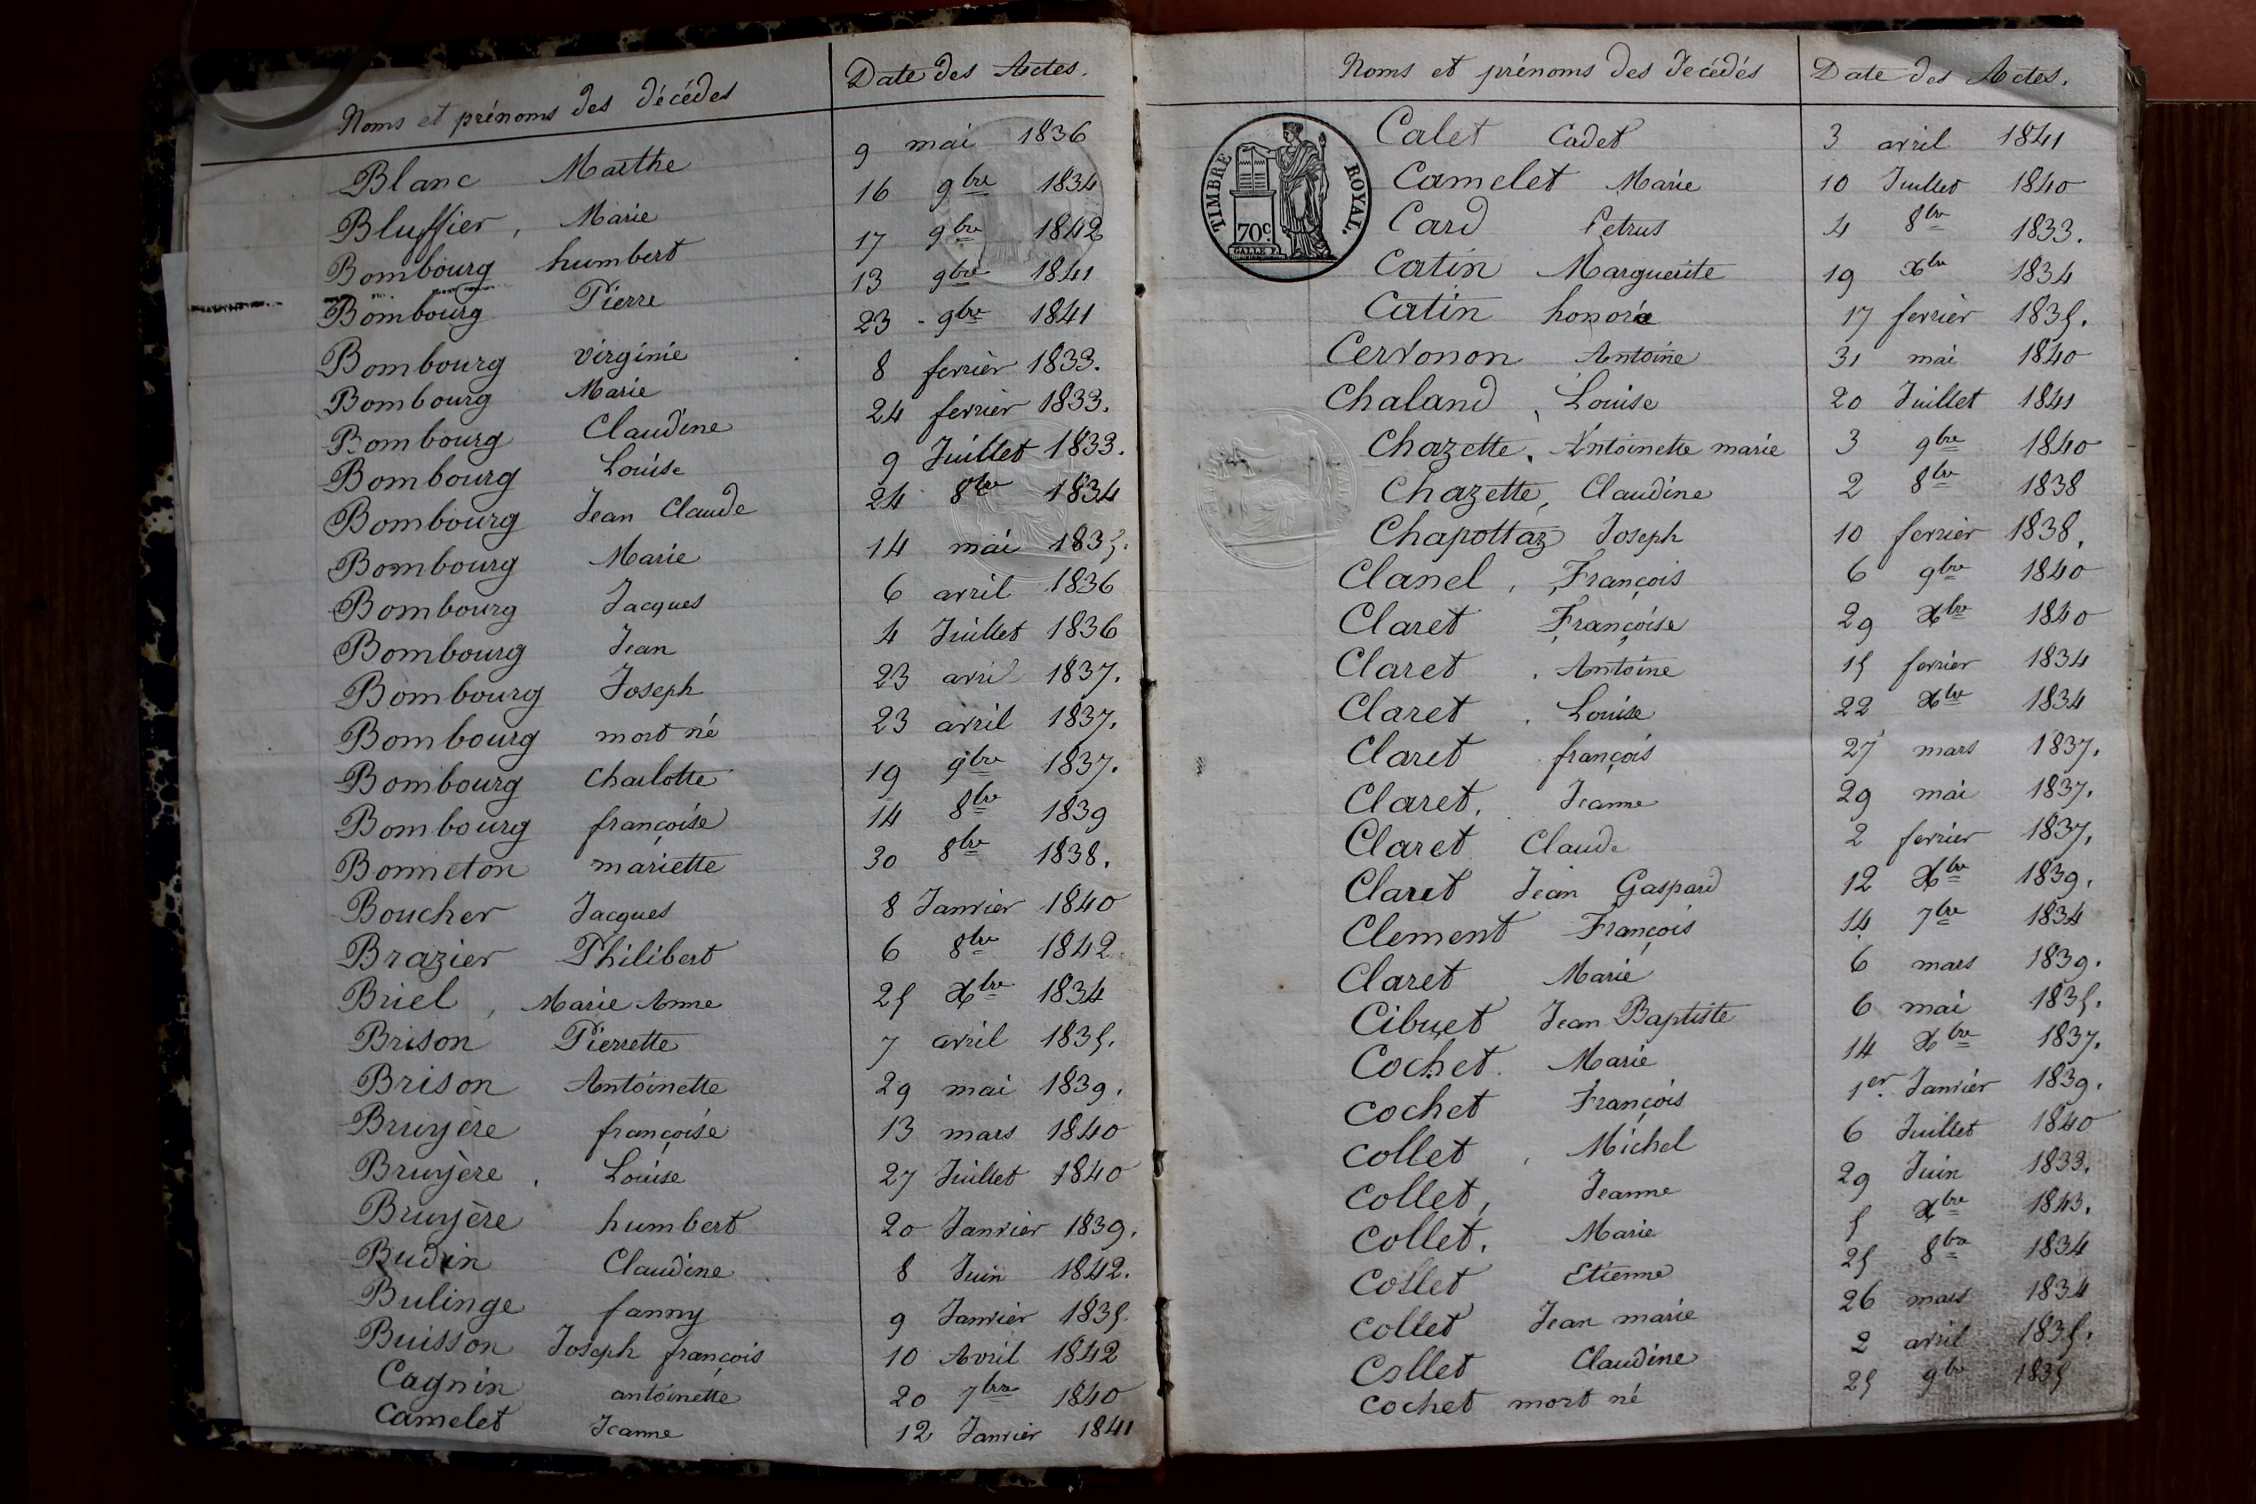 Noms et prénoms des décédés Date des Actes.
Blanc Marthe 9 mai 1836
Bluffier, Marie 16 9bre 1834
Bombourg humbert 17 9bre 1842
Bombourg Pierre 13 9bre 1841
Bombourg virginie 23 9bre 1841
Bombourg Marie 8 fevrier 1833.
Bombourg Claudine 24 fevrier 1833.
Bombourg Louise 9 Juillet 1833.
Bombourg Jean Claude 24 8bre 1834
Bombourg Marie 14 mai 1835.
Bombourg Jacques 6 avril 1836
Bombourg Jean 4 Juillet 1836
Bombourg Joseph 23 avril 1837.
Bombourg mort né 23 avril 1837.
Bombourg Charlotte 19 9bre 1837.
Bombourg françoise 14 8bre 1839
Bonneton mariette 30 8bre 1838.
Boucher Jacques 8 Janvier 1840
Brazier Philibert 6 8bre 1842
Briel, Marie Anne 25 Xbre 1834
Brison Pierrette 7 avril 1835.
Brison Antoinette 29 mai 1839.
Bruyère françoise 13 mars 1840
Bruyère. Louise 27 Juillet 1840
Bruyère humbert 20 Janvier 1839.
Budin Claudine 8 Juin 1842.
Bulinge fanny 9 Janvier 1835.
Buisson Joseph françois 10 Avril 1842
Cagnin antoinette 20 7bre 1840
Camelet Jeanne 12 Janvier 1841
Noms et prénoms des decédés Date des Actes.
TIMBRE ROYAL.
70c.
Calet Cadet 3 avril 1841
Camelet Marie 10 Juillet 1840
Card Petrus 4 8bre 1833.
Catin Marguerite 19 Xbre 1834
Catin honoré 17 fevrier 1835.
Cervonon Antoine 31 mai 1840
Chaland, Louise 20 Juillet 1841
Chazette, Antoinette marie 3 9bre 1840
Chazette, Claudine 2 8bre 1838
Chapottaz Joseph 10 fevrier 1838.
Clanel, François 6 9bre 1840
Claret Françoise 29 Xbre 1840
Claret. Antoine 15 fevrier 1834
Claret. Louise 22 Xbre 1834
Claret françois 27 mars 1837.
Claret. Jeanne 29 mai 1837.
Claret Claude 2 fevrier 1837.
Claret Jean Gaspard 12 Xbre 1839.
Clement François 14 7bre 1834
Claret Marie 6 mars 1839.
Cibuet Jean Baptiste 6 mai 1835.
Cochet. Marie 14 Xbre 1837.
Cochet François 1er. Janvier 1839.
Collet, Michel 6 Juillet 1840
Collet, Jeanne 29 Juin 1833.
Collet. Marie 5 Xbre 1843.
Collet Etienne 25 8bre 1834
Collet Jean marie 26 mars 1834
Collet Claudine 2 avril 1835.
Cochet mort né 25 9bre 1835